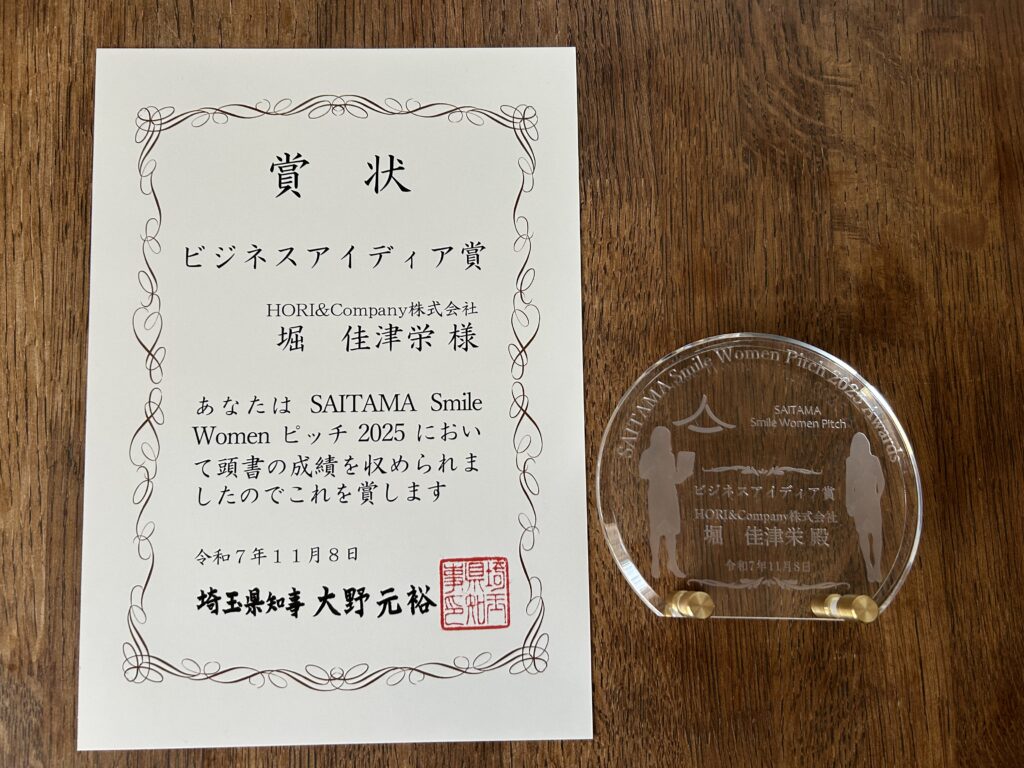 賞 状
ビジネスアイディア賞
HORI&Company株式会社
堀 佳津栄 様
あなたは SAITAMA Smile
Women ピッチ 2025 におい
て頭書の成績を収められま
したのでこれを賞します
令和７年１１月８日
埼玉県知事 大野元裕
埼玉県知事印
SAITAMA Smile Women Pitch 2025 Awards
SAITAMA
Smile Women Pitch
ビジネスアイディア賞
HORI&Company株式会社
堀 佳津栄 殿
令和7年11月8日